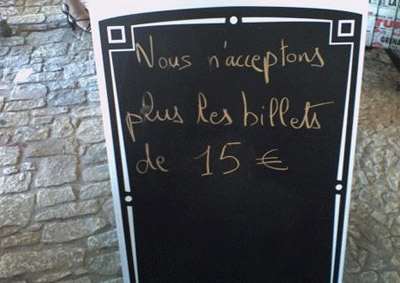 Nous n'acceptons
plus les billets
de 15 €